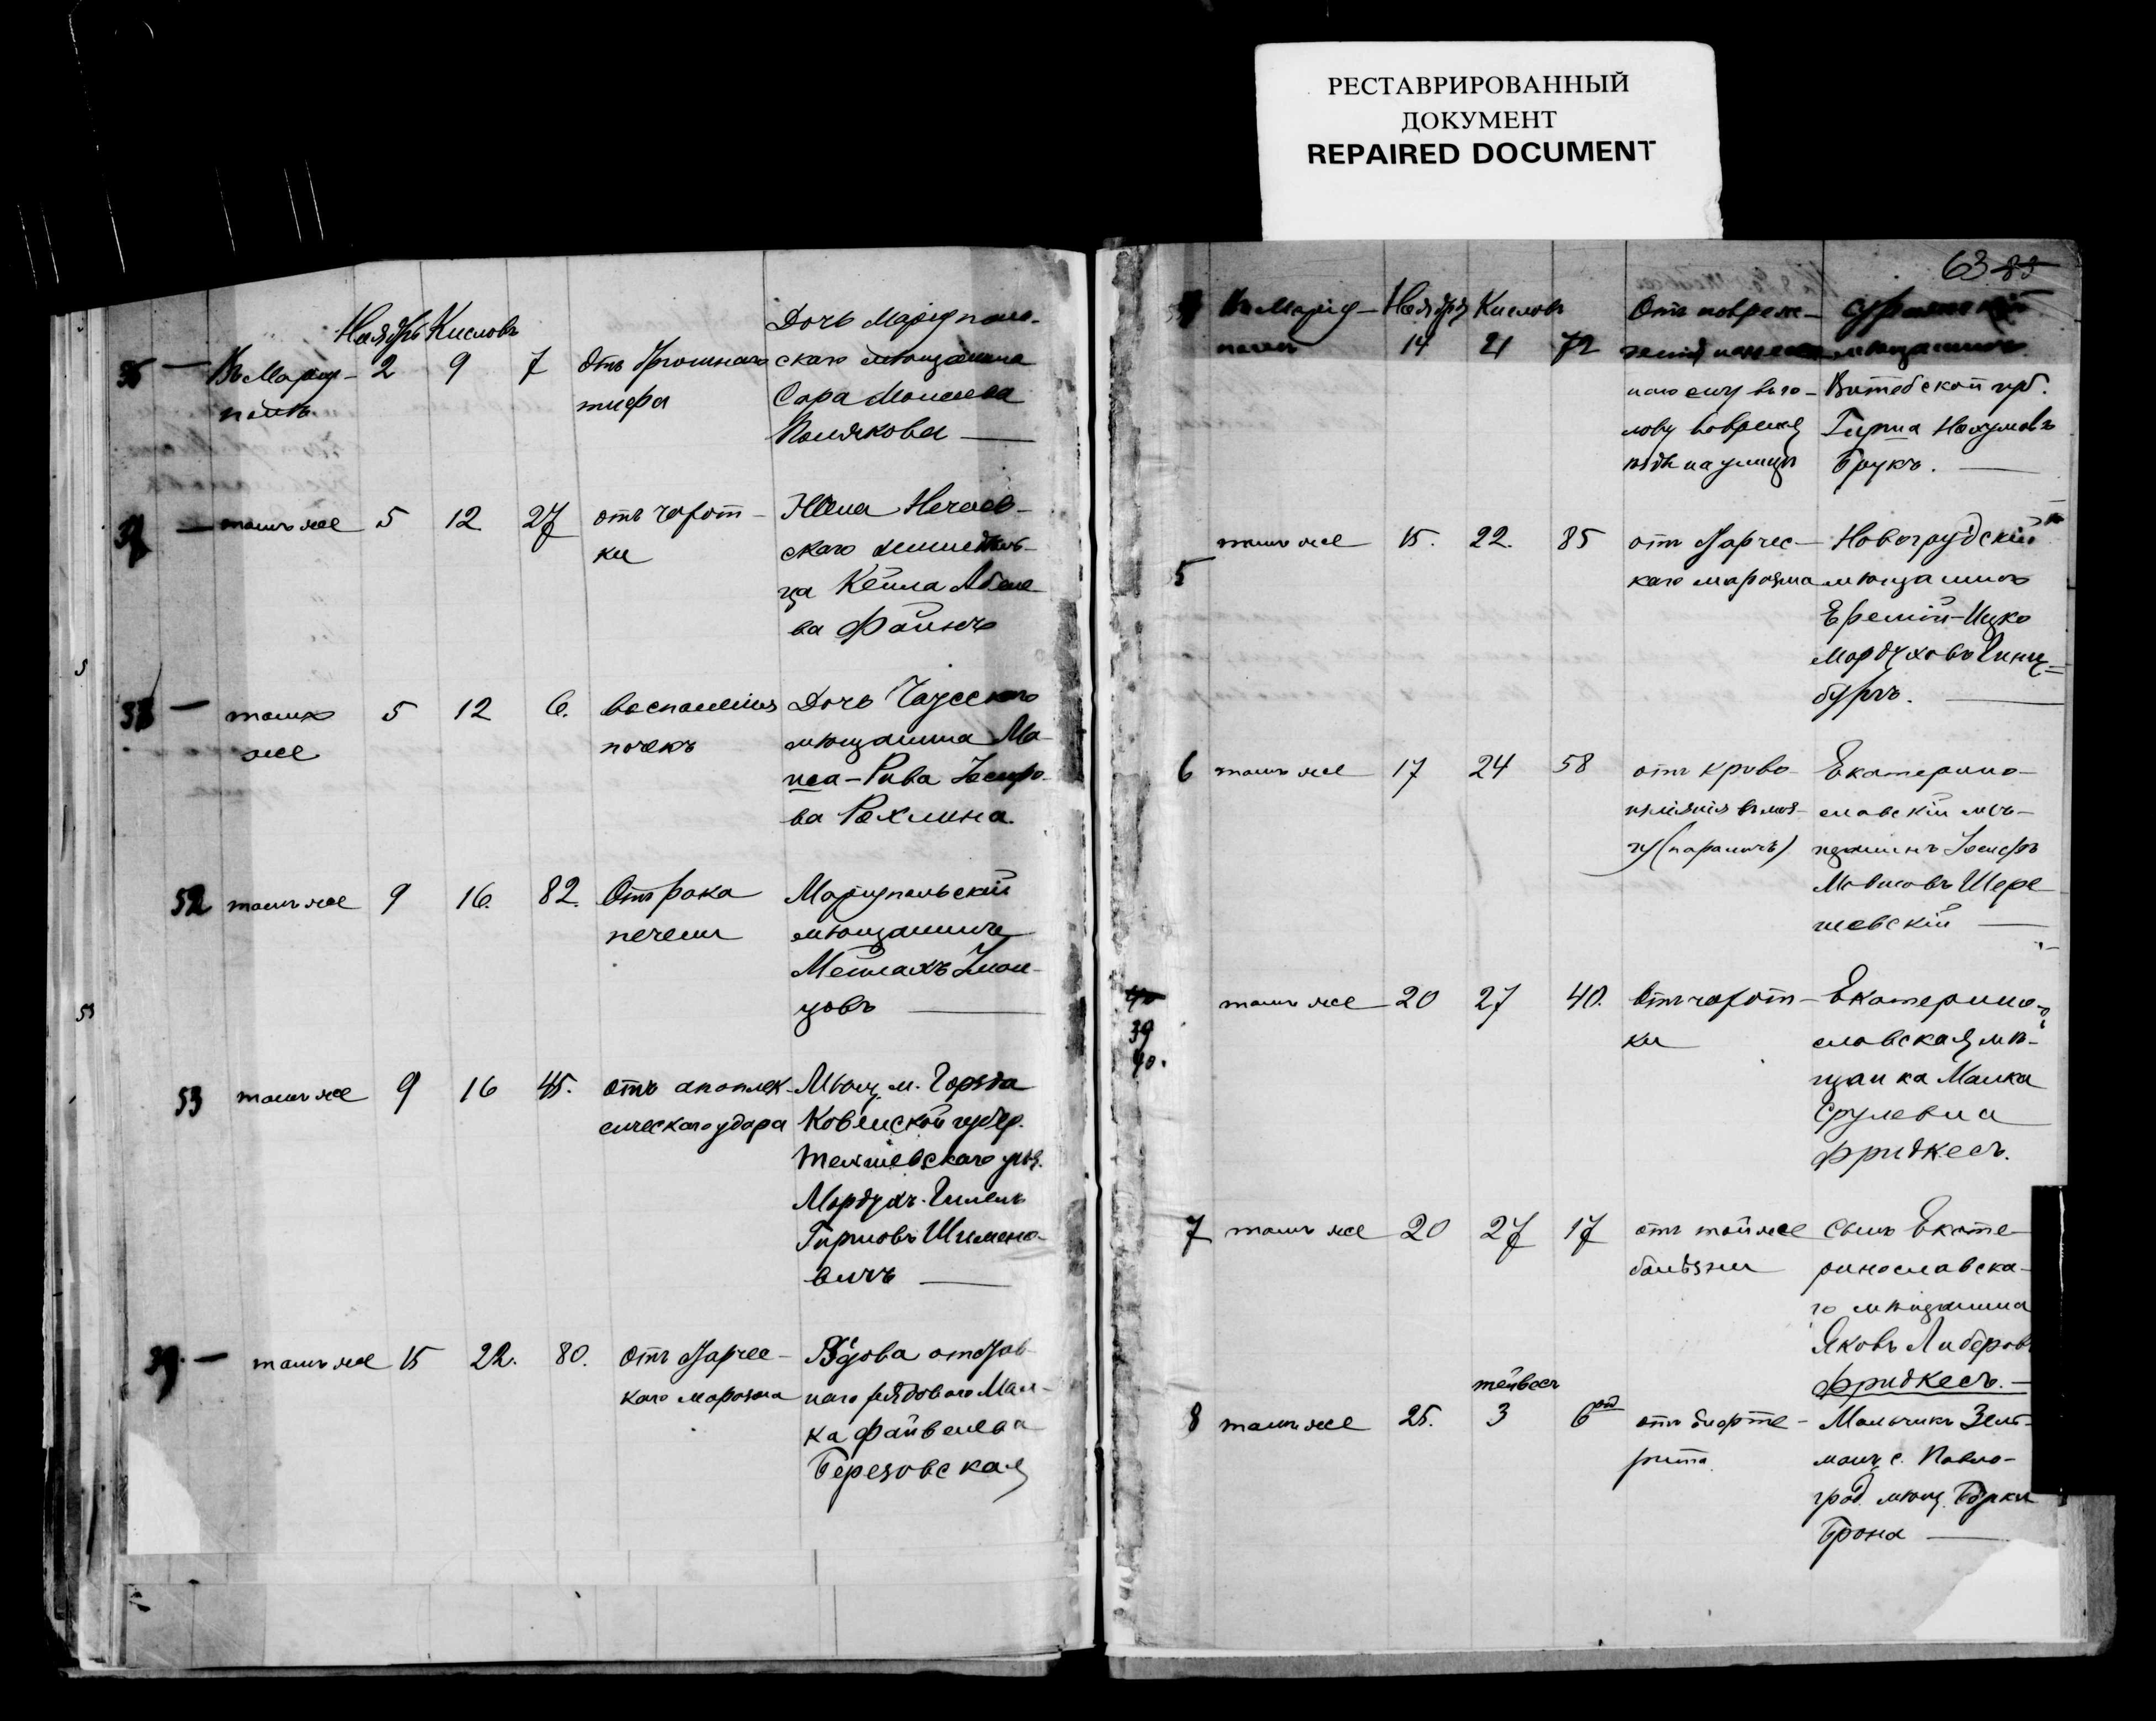 РЕСТАВРИРОВАННЫЙ
ДОКУМЕНТ
REPAIRED DOCUMENT
Ноябрь Кислевъ
36 — Въ Мариу-
полѣ 2 9 7 отъ брюшнаго
тифа
Дочь Маріуполь-
скаго мѣщанина
Сара Моисеева
Полякова —
37 — тамъ же 5 12 27 отъ чахот-
ки
Жена Нечаев-
скаго
Кейла Абеле-
ва Файнъ
38 — тамъ
же 5 12 6. воспаленія
почекъ
Дочь Чаусскаго
мѣщанина Ма-
Рива Іосифо-
ва Рохлина.
52 тамъ же 9 16. 82. Отъ рака
печени
Маріупольскій
мѣщанинъ
Мейлахъ
цовъ —
53 тамъ же 9 16 45. отъ апоплек-
сическаго удара
Мѣщ. м. Горжда
Ковенской губер.
Тельшевскаго уѣз.
Мордухъ-Гилель
Гиршовъ Шимано-
вичъ —
39. — тамъ же 15 22. 80. отъ старчес-
каго маразма
Вдова отстав-
наго рядового Мал-
ка Файвелева
Березовская
63 85
Въ Маріу-
полѣ Ноября Кислев
14 21 72
Отъ повреж-
денія нанесен-
наго ему въ го-
лову во время
на улицѣ
Суражскій
мѣщанинъ
Витебской губ.
Гирша Нохумовъ
Брукъ. —
5 тамъ же 15. 22. 85 отъ старчес-
каго маразма
Новогрудскій
мѣщанинъ
Ефремій-Ицко
Мордуховъ Гинц-
бургъ. —
6 тамъ же 17 24 58 отъ крово-
изліянія въ моз-
гу (параличъ)
Екатерино-
славскій мѣ-
щанинъ Іосифъ
Мовшовъ Шере-
шевскій —
40
39
40.
тамъ же 20 27 40. Отъ чахот-
ки
Екатерино-
славская мѣ-
щанка Малка
Срулевна
Фридкесъ.
7 тамъ же 20 27 17 отъ той же
болѣзни
Сынъ Екате-
ринославска-
го мѣщанина
Яковъ Либеровъ
Фридкесъ. —
тейвесъ
8 тамъ же 25. 3 6 отъ дифте-
рита.
Мальчикъ Зель-
манъ с. Павло-
град. мѣщ. Берки
Брона —